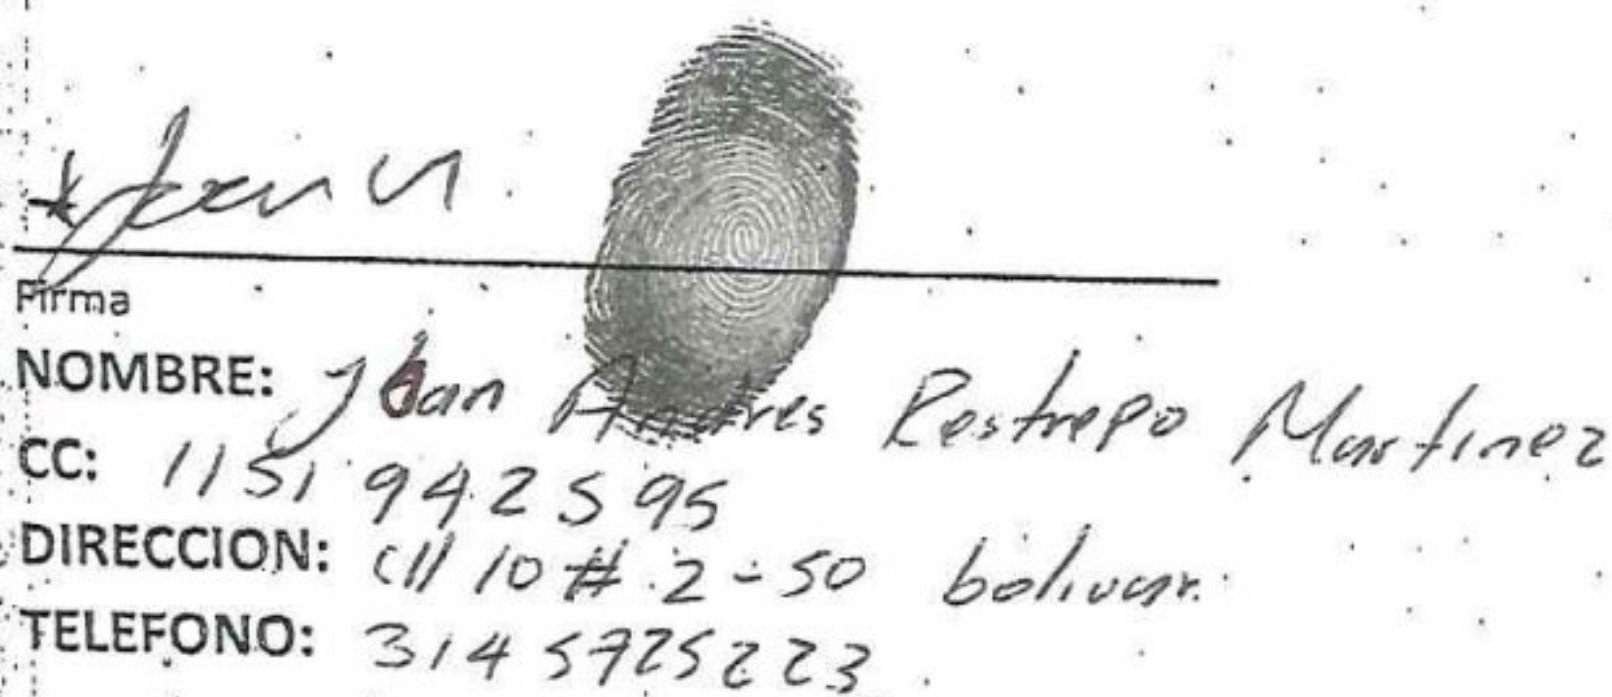 Firma
NOMBRE: Jhan Andres Restrepo Martinez
CC: 1151 942595
DIRECCION: Cll 10 # 2-50 bolivar.
TELEFONO: 314 5725223